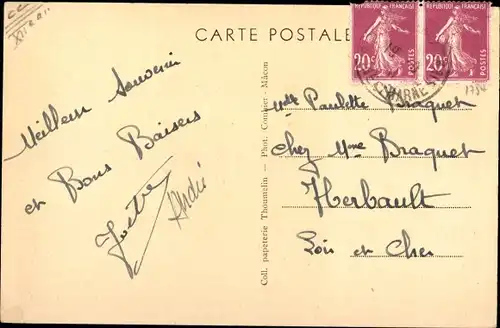 CARTE POSTALE
REPUBLIQUE FRANÇAISE REPUBLIQUE FRANÇAISE
20c POSTES 20c POSTES
1734
Meilleur Souvenir
et Bons Baisers
André
Coll. papeterie Thoummelin - Phot. Combier - Mâcon
Mlle Paulette Braquet
chez Mme Braquet
Herbault
Loir et Cher